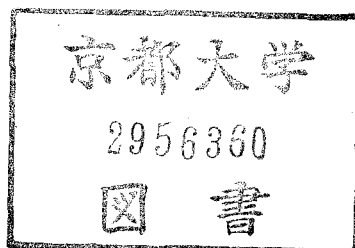 京都大学
2956360
図書